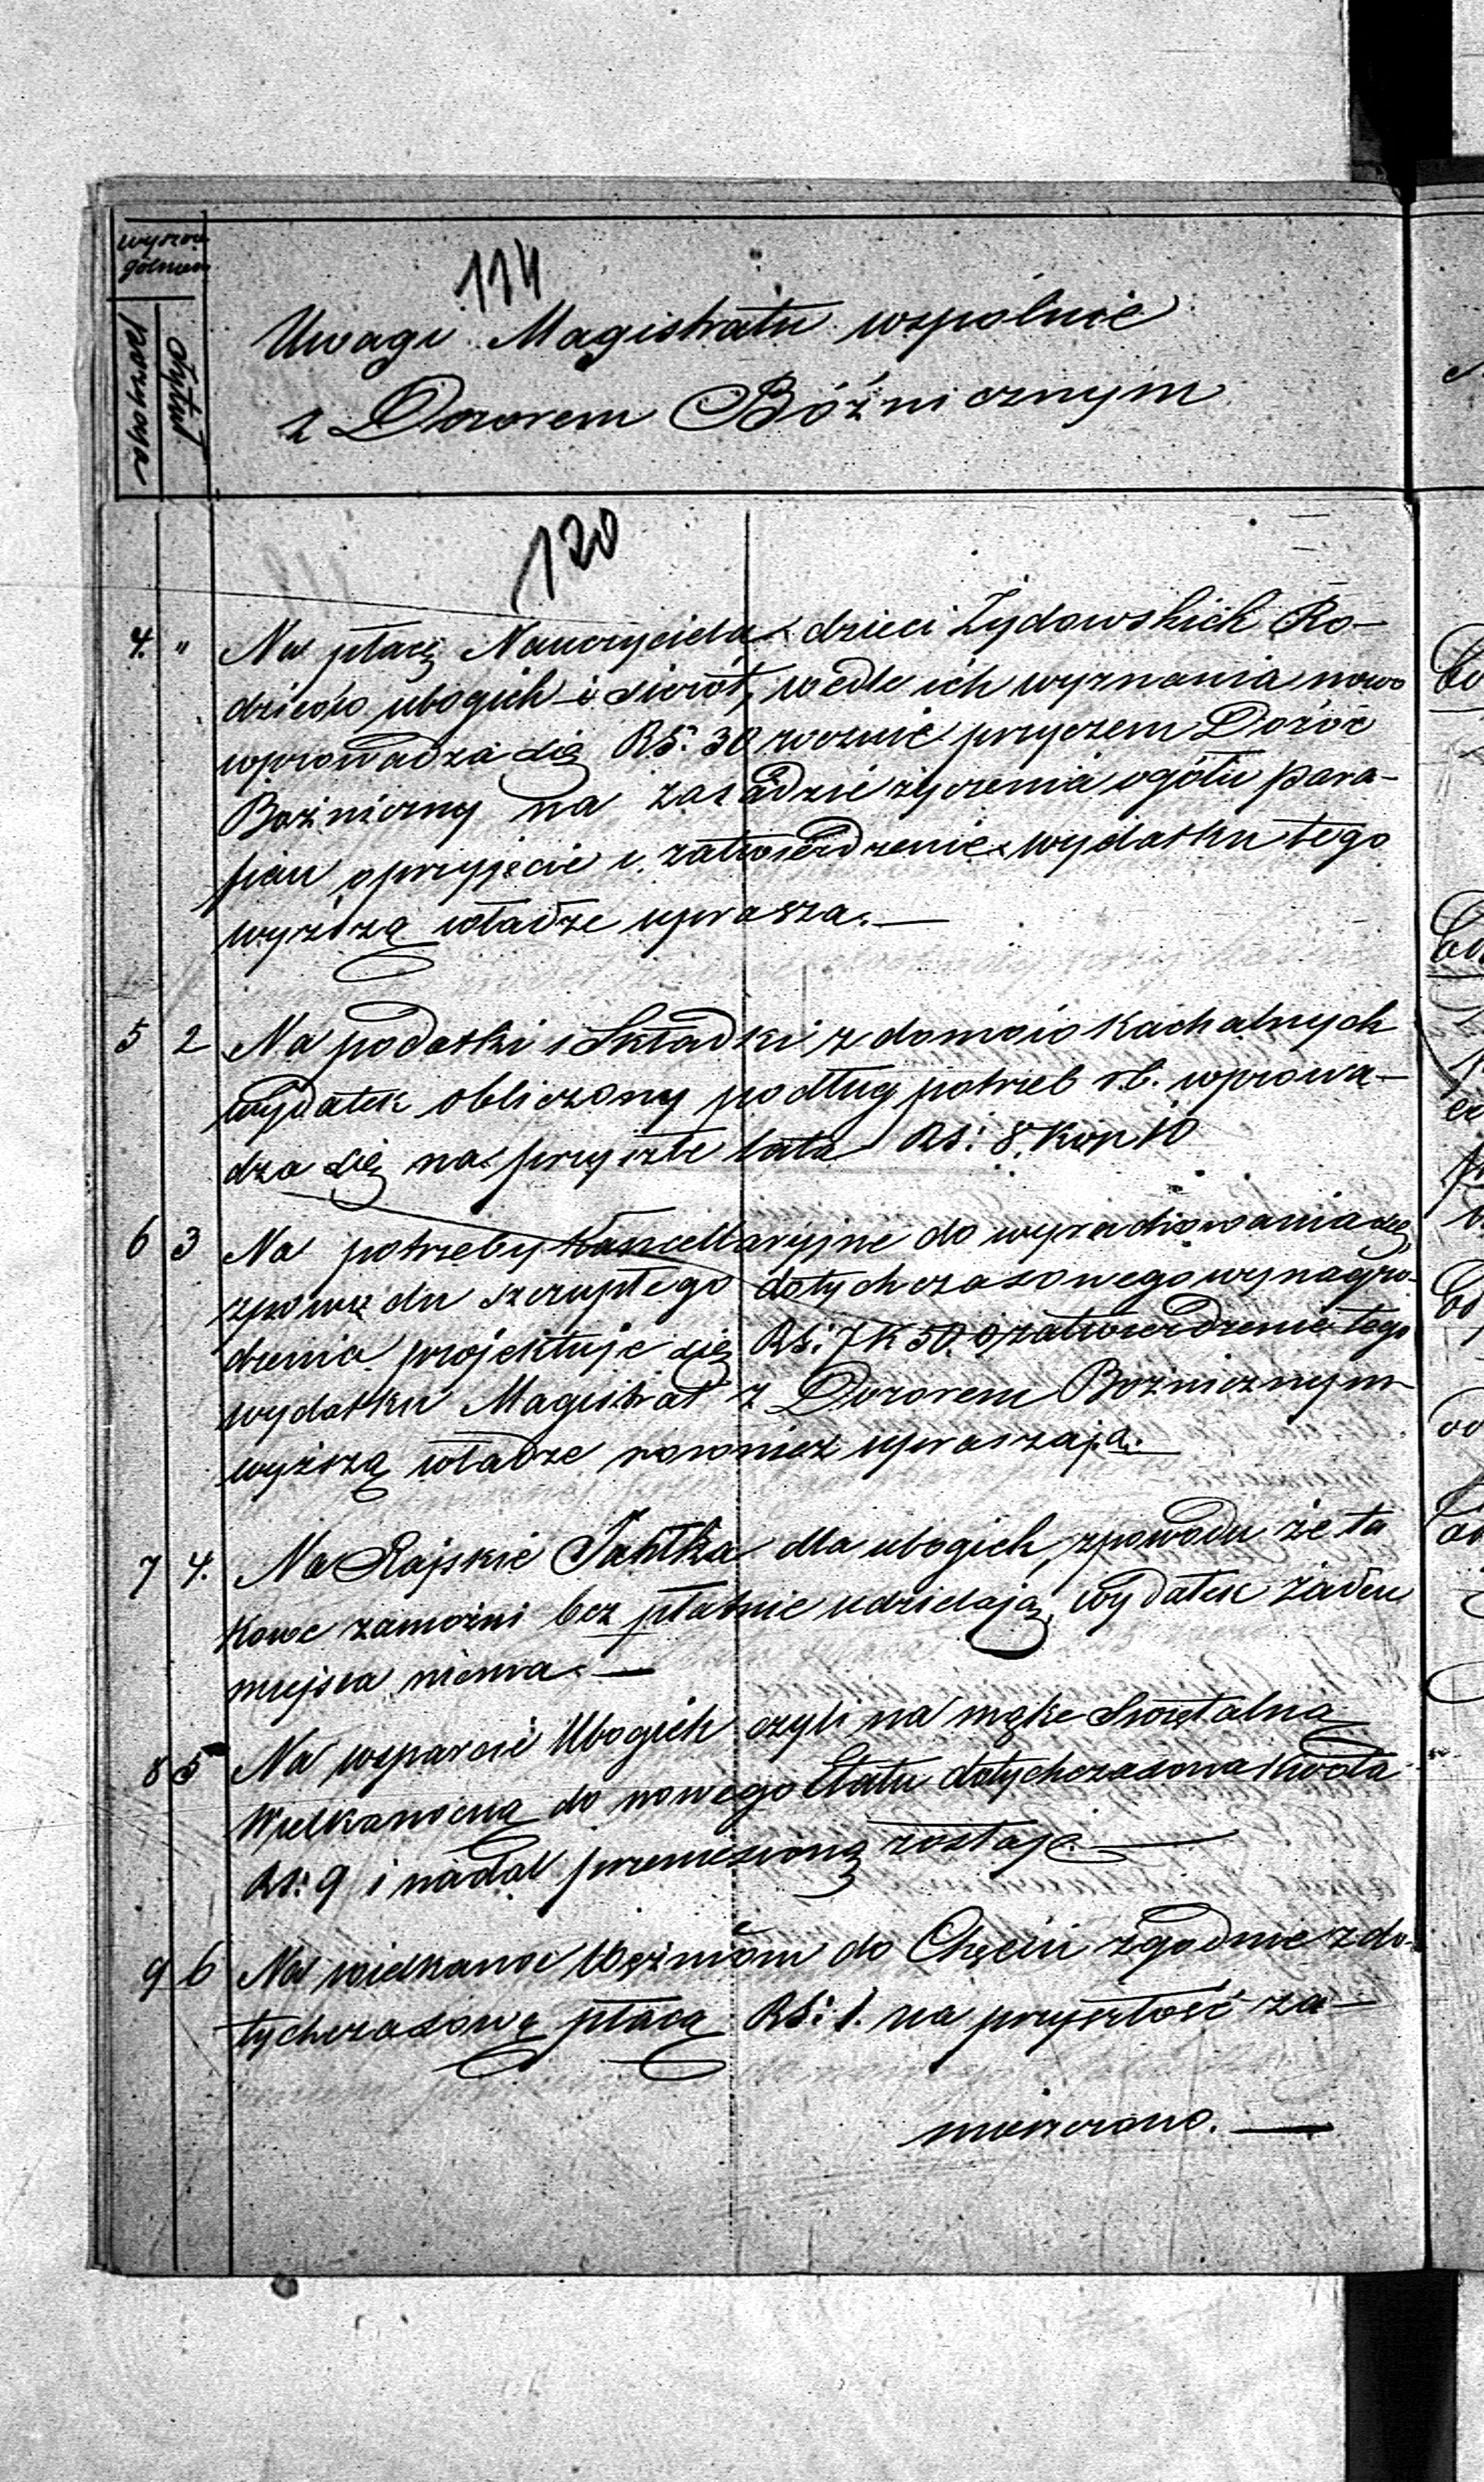 wyszcze
gólnien
pozycya
Tytuł
114
Uwagi Magistratu wspólnie
z Dozorem Bóźnicznym
120
4. " Na płacę Nauczyciela dzieci Żydowskich Ro-
dziców ubogich i sierot, wedle ich wyznania nowo
wprowadza się RS: 30 rocznie przyczem Dozór
Bóżniczny na zasadzie życzenia ogółu para-
fian o przyjęcie i zatwierdzenie wydatku tego
wyższą władze uprasza.—
5 2 Na podatki i Składki z domów Kachalnych
wydatek obliczony podług potrzeb r.b. wprowa-
dza się na przyszłe lata RS: 8. Kop 10
6 3 Na potrzeby Kancellaryjne do wyrachowania się
zpowodu szczupłego dotychczasowego wynagro-
dzenia projektuje się RS: 7 K 50. o zatwierdzenie tego
wydatku Magistrat z Dozorem Bożnicznym
wyższą władze rownież upraszają.
7 4. Na Rajskie Jabłka dla ubogich, zpowodu że ta
kowe zamożni bez płatnie udzielają, wydatek żaden
miejsca niema.—
8 5 Na wsparcie Ubogich czyli na mąke
Wielkanocną do nowego Etatu dotychczasowa Kwota
RS: 9 i nadal przeniesioną zostaje.—
9 6 Na wielkanoc Więźniom do Chęcin zgodnie z do
tychczasową płacą RS: 1. na przyszłość za—
mieszczono.—